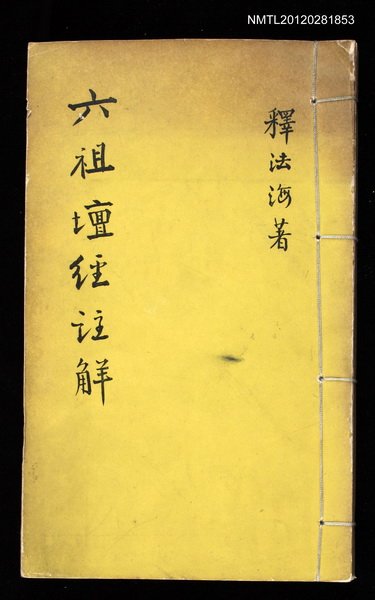 NMTL20120281853
釋法海著
六祖壇經註解